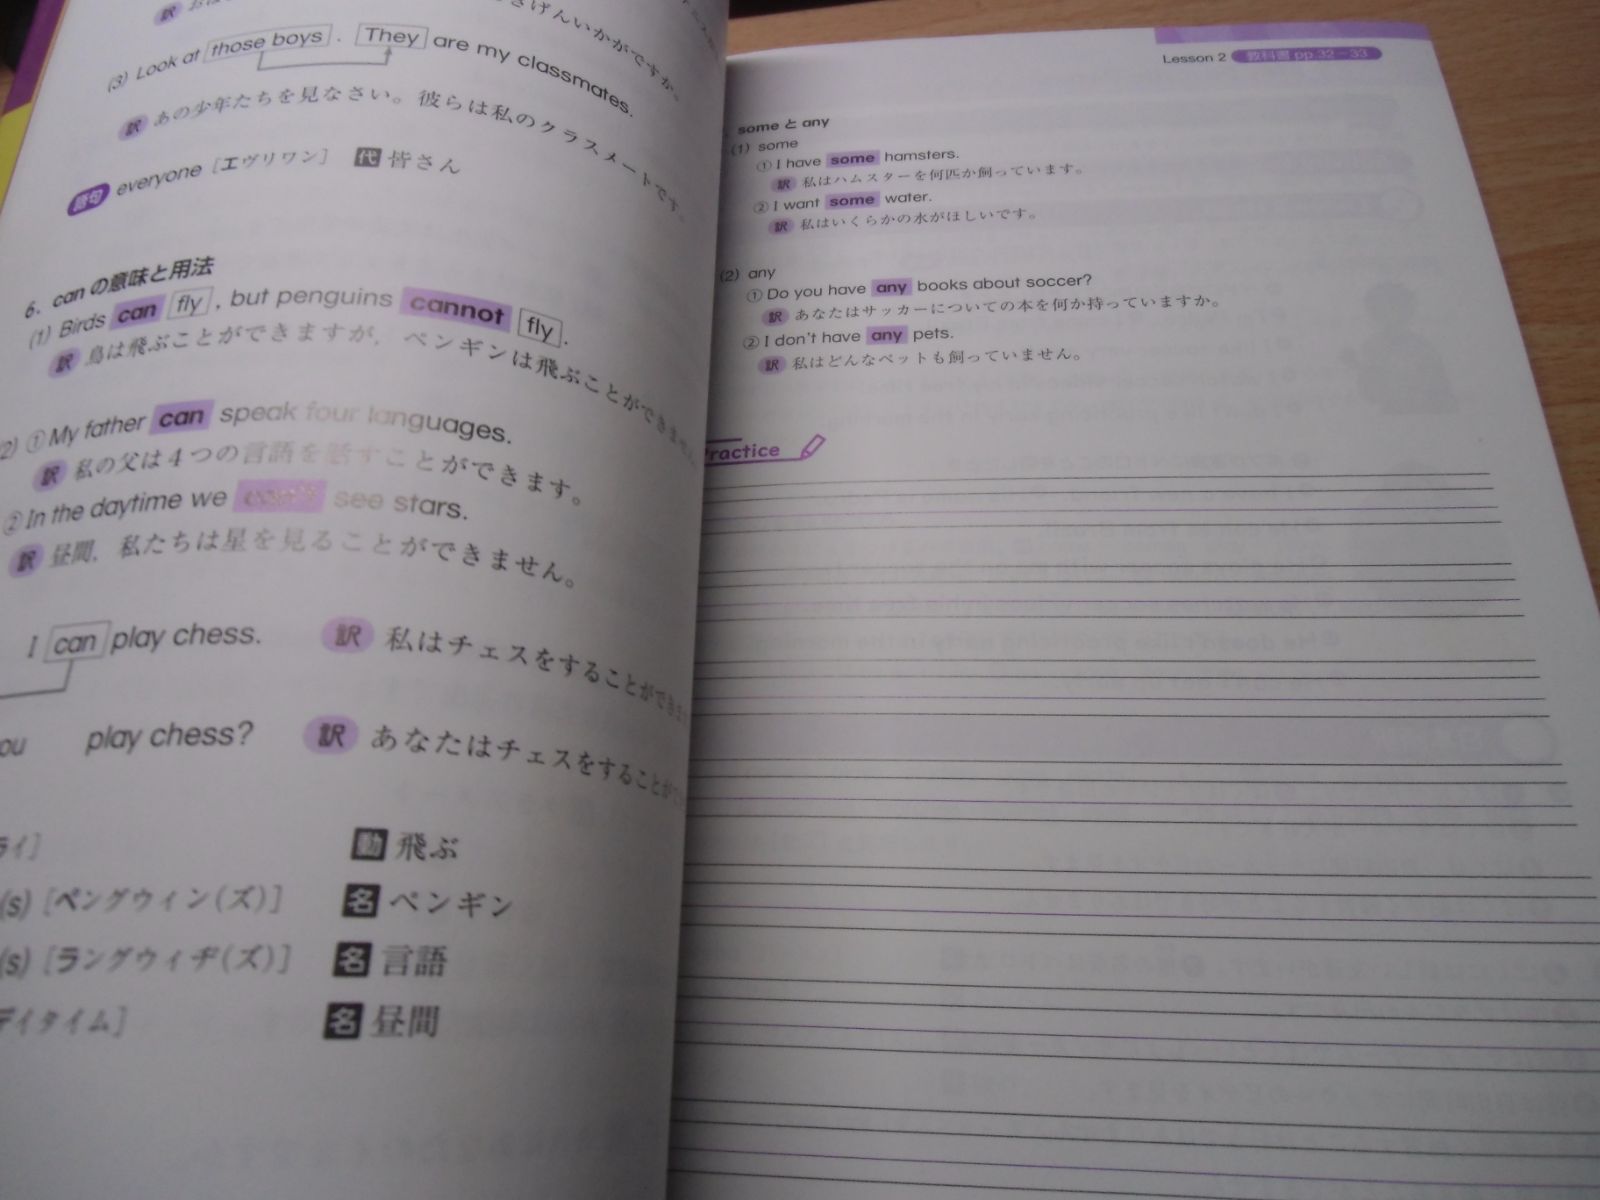 (3) Look at those boys . They are my classmates.
訳 あの少年たちを見なさい。彼らは私のクラスメートです。
語句 everyone [エヴリワン] 代 皆さん
6. can の意味と用法
(1) Birds can fly , but penguins cannot fly .
訳 鳥は飛ぶことができますが，ペンギンは飛ぶことができません
(2) ① My father can speak four languages.
訳 私の父は４つの言語を話すことができます。
② In the daytime we can't see stars.
訳 昼間，私たちは星を見ることができません。
I can play chess. 訳 私はチェスをすることができます
play chess? 訳 あなたはチェスをすることができ
動 飛ぶ
(s) [ペングウィン(ズ)] 名 ペンギン
(s) [ラングウィヂ(ズ)] 名 言語
デイタイム] 名 昼間
Lesson 2 教科書 pp.32－33
some と any
(1) some
① I have some hamsters.
訳 私はハムスターを何匹か飼っています。
② I want some water.
訳 私はいくらかの水がほしいです。
(2) any
① Do you have any books about soccer?
訳 あなたはサッカーについての本を何か持っていますか。
② I don't have any pets.
訳 私はどんなペットも飼っていません。
Practice